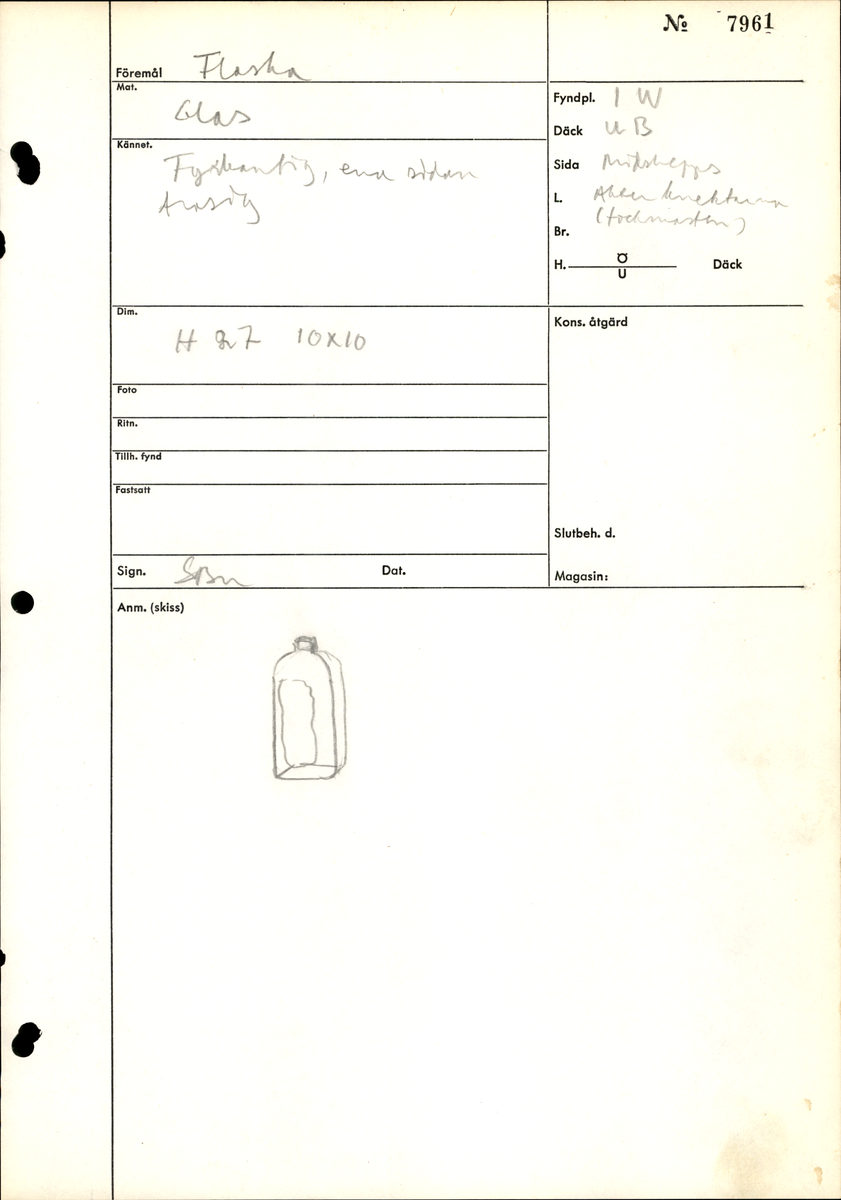 № 7961
Föremål Flaska
Mat.
Glas
Kännet.
Fyrkantig, ena sidan
trasig
Fyndpl. I W
Däck U B
Sida Midskepps
L. Akter knektarna
(fockmasten)
Br.
H. Ö
U
Däck
Dim.
H 27 10x10
Kons. åtgärd
Foto
Ritn.
Tillh. fynd
Fastsatt
Slutbeh. d.
Sign. SBn Dat.
Magasin:
Anm. (skiss)